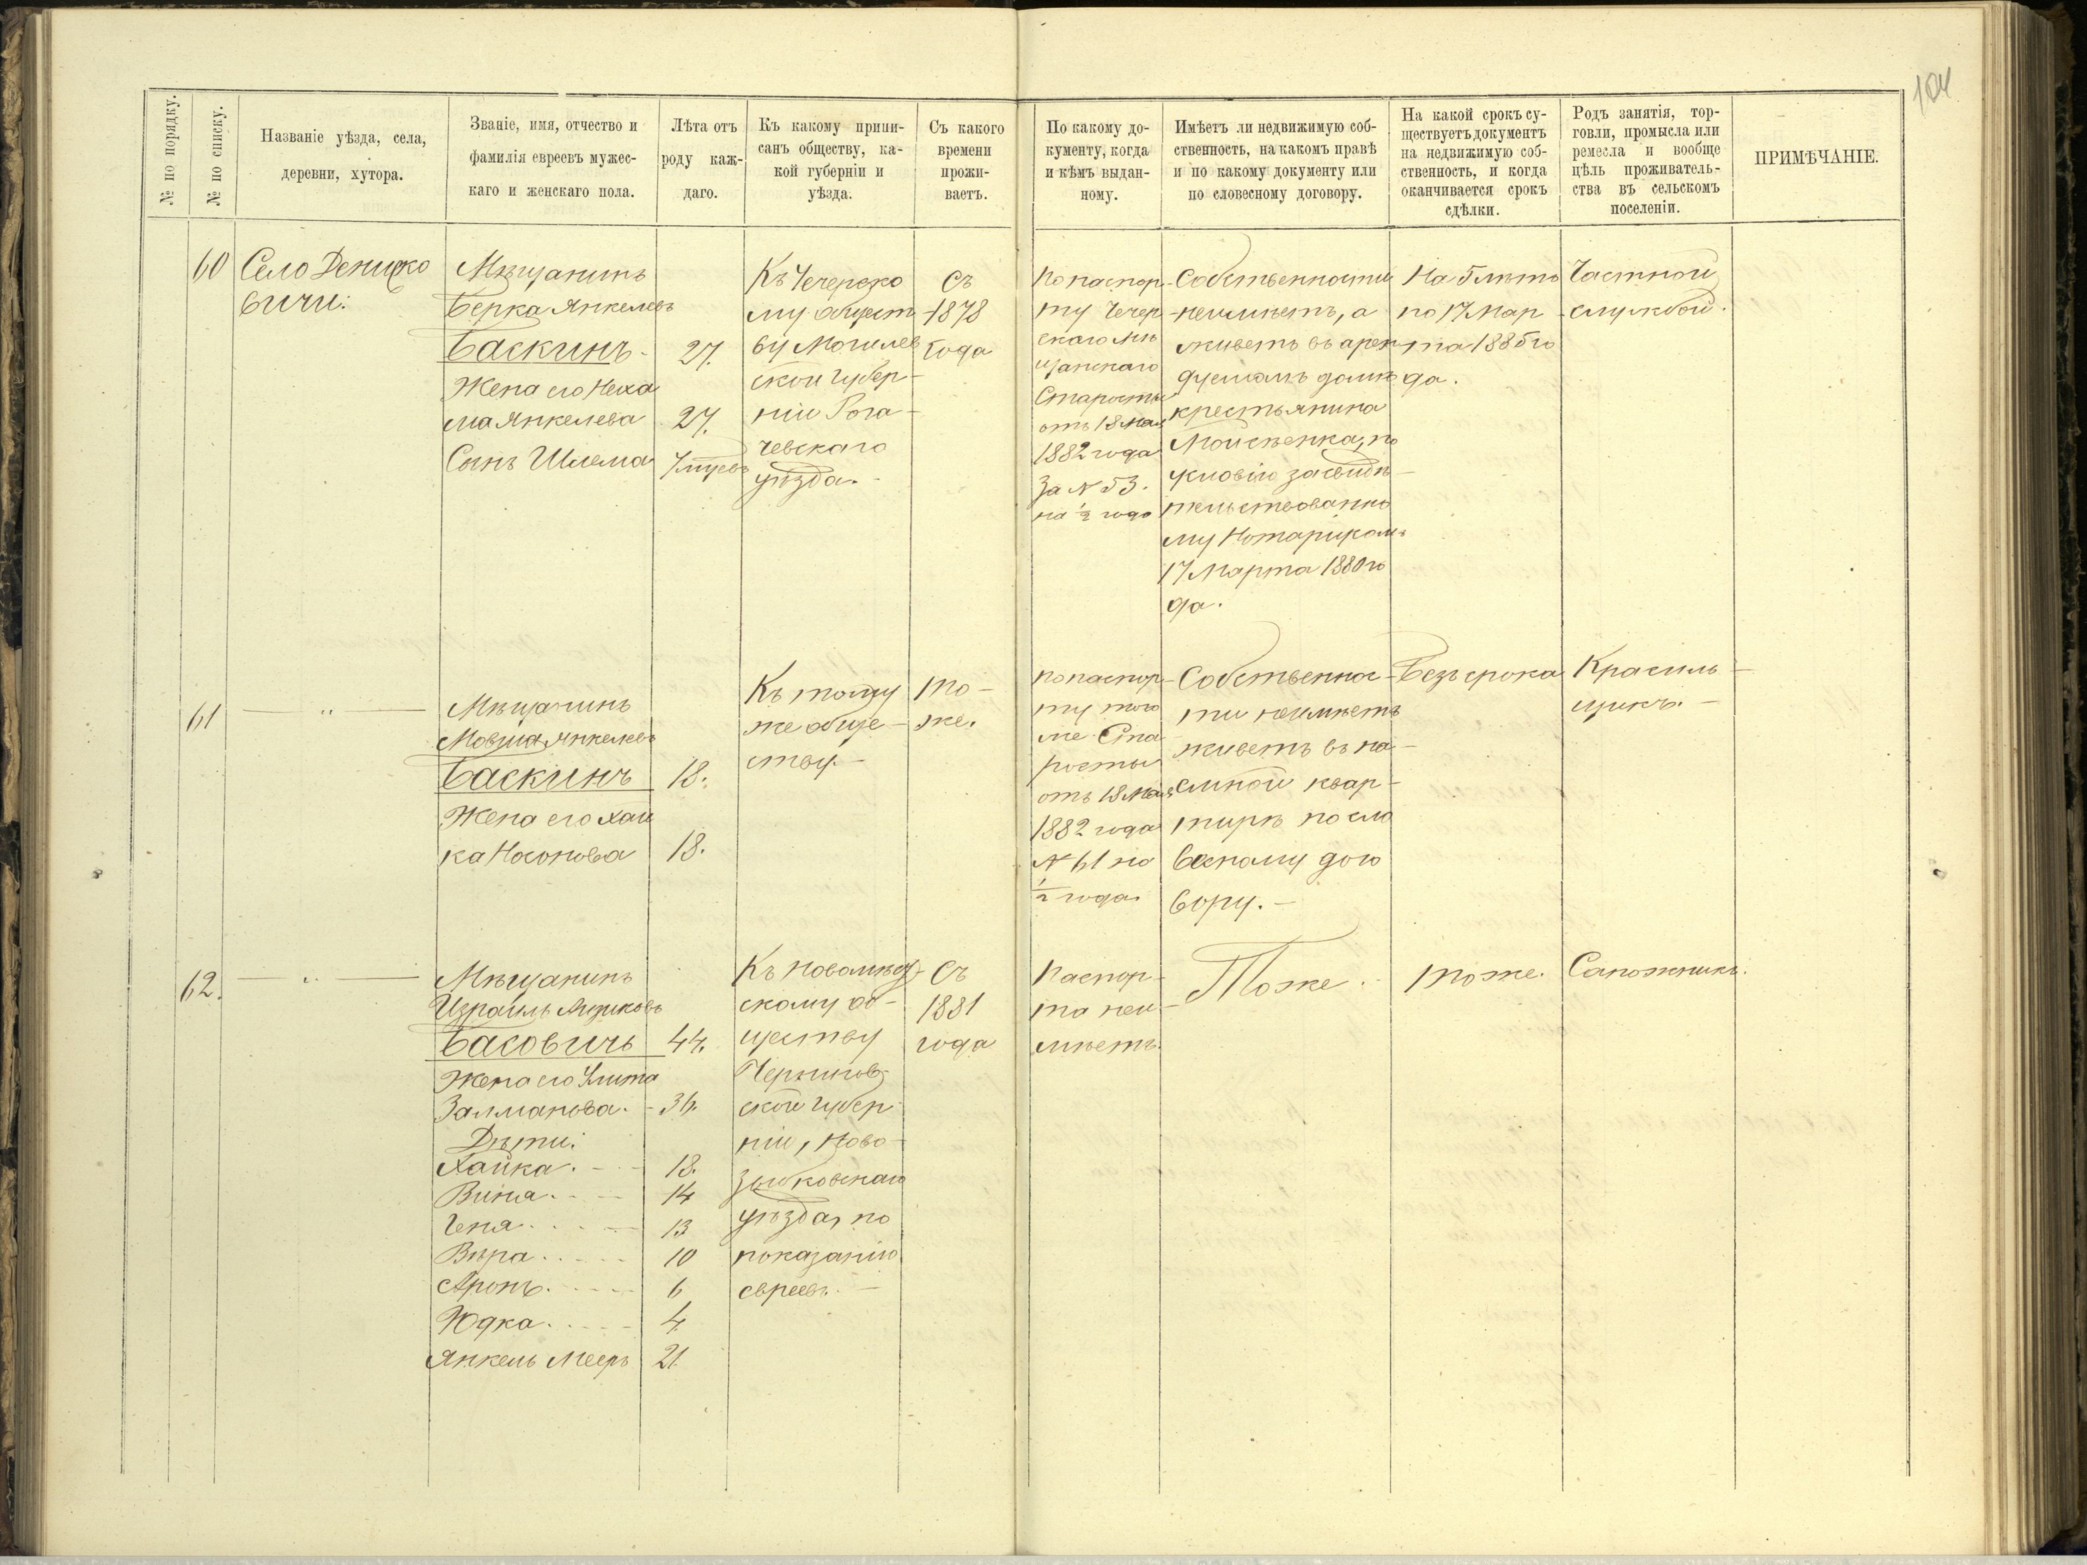 104
№ по порядку.
№ по списку.
Названіе уѣзда, села,
деревни, хутора.
Званіе, имя, отчество и
фамилія евреевъ мужес-
каго и женскаго пола.
Лѣта отъ
роду каж-
даго.
Къ какому припи-
санъ обществу, ка-
кой губерніи и
уѣзда.
Съ какого
времени
прожи-
ваетъ.
По какому до-
кументу, когда
и кѣмъ выдан-
ному.
Имѣетъ ли недвижимую соб-
ственность, на какомъ правѣ
и по какому документу или
по словесному договору.
На какой срокъ су-
ществуетъ документъ
на недвижимую соб-
ственность, и когда
оканчивается срокъ
сдѣлки.
Родъ занятія, тор-
говли, промысла или
ремесла и вообще
цѣль проживатель-
ства въ сельскомъ
поселеніи.
ПРИМѢЧАНІЕ.
60
Село Дениско
вичи:
Мѣщанинъ
Берка Янкелевъ
Баскинъ -
Жена его Неха
ма Янкелева
Сынъ Шлема
27.
27.
Къ Чечерско
му общест
ву Могилев
ской губер-
ніи Рога-
чевскаго
уѣзда.
Съ
1878
года
По паспор-
ту Чечер
скаго Мѣ
щанскаго
Старосты
отъ 18 мая
1882 года
за № 53.
на ½ года
Собственности
неимѣетъ, а
живетъ въ арен
дуемомъ домѣ
крестьянина
Моисѣенка, по
условію засвидѣ-
тельствованно
му Нотаріусомъ
17 Марта 1880 го
да.
На 5 лѣтъ
по 17 Мар
та 1885 го
да.
Частной
службой.
61
— " —
Мѣщанинъ
Мовша Янкелевъ
Баскинъ
Жена его Хаи
ка Носонова
18.
18.
Къ тому
же обще-
ству. —
то-
же.
По паспор-
ту того
же Ста
росты
отъ 18 мая
1882 года
№ 61 на
½ года
Собственнос-
ти неимѣетъ
живетъ въ на-
емной квар-
тирѣ по сло
весному дого
вору. —
Безъ срока
Красиль-
щикъ. —
62.
— " —
Мѣщанинъ
Израиль Ициковъ
Басовичъ
Жена его
Залманова. -
Дѣти:
Хайка. - -
Вина. - -
Геня . . . -
Вѣра . . . .
Аронъ. - - -
Юдка. . . . -
Янкель Мееръ
44.
36.
18.
14
13
10
6
4
21.
Къ Новомѣст-
скому об-
ществу
Чернигов-
ской губер
ніи, Ново-
зыбковскаго
уѣзда, по
показанію
евреевъ. —
Съ
1881
года
Паспор-
та неи-
мѣетъ.
Тоже.
тоже.
Сапожникъ.